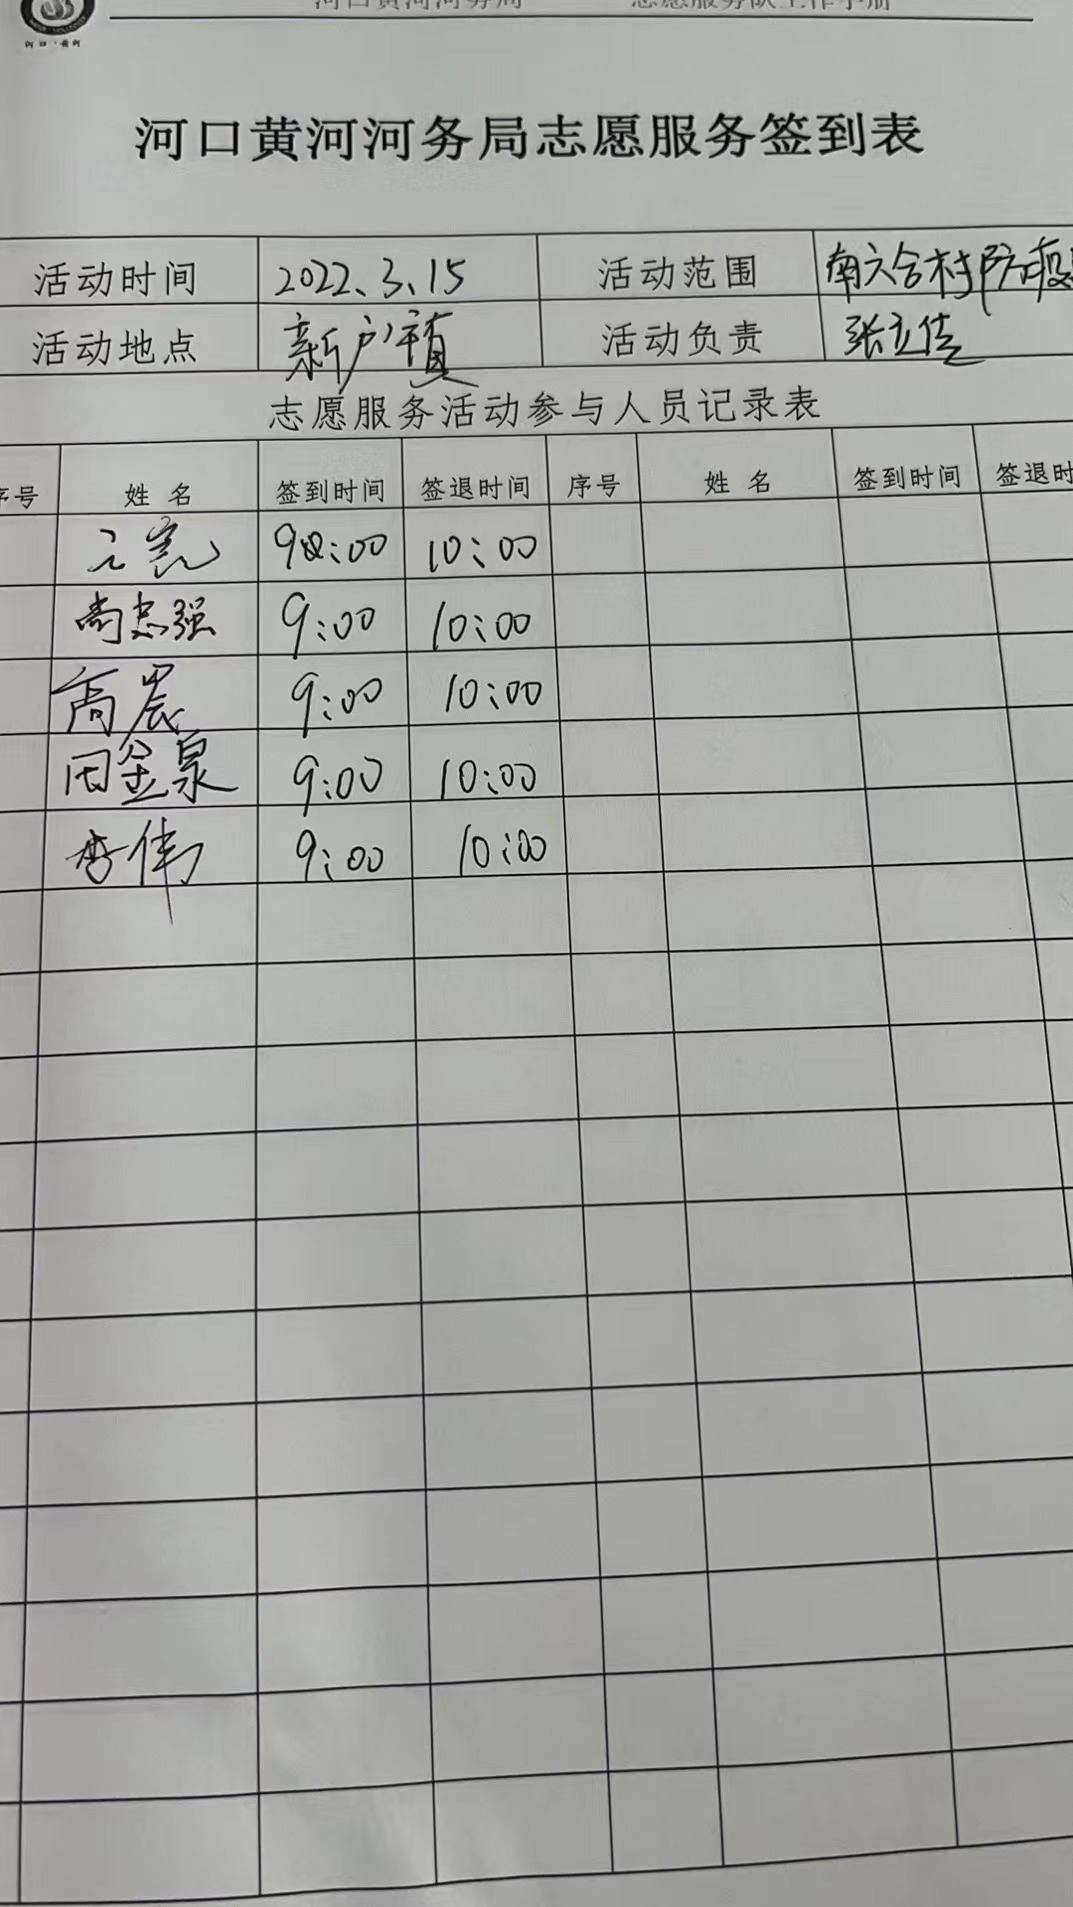 河口黄河河务局 志愿服务队工作手册
河口·黄河
河口黄河河务局志愿服务签到表
活动时间 2022.3.15 活动范围 南六合村防疫
活动地点 新户镇 活动负责 张立佳
志愿服务活动参与人员记录表
序号 姓名 签到时间 签退时间 序号 姓名 签到时间 签退时
9:00 10:00
尚志强 9:00 10:00
高晨 9:00 10:00
田金泉 9:00 10:00
李伟 9:00 10:00